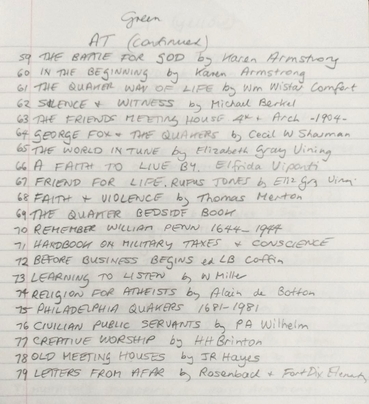 Green
AT (continued)
59 THE BATTLE FOR GOD by Karen Armstrong
60 IN THE BEGINNING by Karen Armstrong
61 THE QUAKER WAY OF LIFE by Wm Wistar Comfort
62 SILENCE & WITNESS by Michael Berkel
63 THE FRIENDS MEETING HOUSE 4th & Arch -1904-
64 GEORGE FOX & THE QUAKERS by Cecil W Sharman
65 THE WORLD IN TUNE by Elizabeth Gray Vining
66 A FAITH TO LIVE BY. Elfrida Vipont
67 FRIEND FOR LIFE. RUFUS JONES by Eliz Gray Vining
68 FAITH & VIOLENCE by Thomas Merton
69 THE QUAKER BEDSIDE BOOK
70 REMEMBER WILLIAM PENN 1644-1944
71 HANDBOOK ON MILITARY TAXES & CONSCIENCE
72 BEFORE BUSINESS BEGINS ed LB Coffin
73 LEARNING TO LISTEN by W Miller
74 RELIGION FOR ATHEISTS by Alain de Botton
75 PHILADELPHIA QUAKERS 1681-1981
76 CIVILIAN PUBLIC SERVANTS by PA Wilhelm
77 CREATIVE WORSHIP by HH Brinton
78 OLD MEETING HOUSES by JR Hayes
79 LETTERS FROM AFAR by Rosenbach & Fort Dix